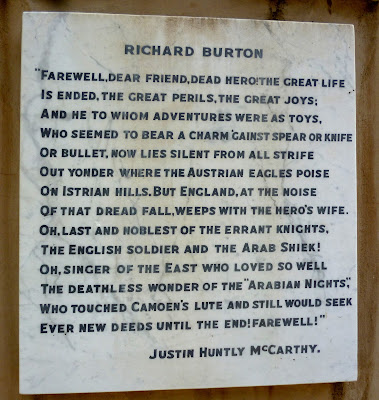 RICHARD BURTON
"FAREWELL, DEAR FRIEND, DEAD HERO! THE GREAT LIFE
IS ENDED, THE GREAT PERILS, THE GREAT JOYS;
AND HE TO WHOM ADVENTURES WERE AS TOYS,
WHO SEEMED TO BEAR A CHARM 'GAINST SPEAR OR KNIFE
OR BULLET, NOW LIES SILENT FROM ALL STRIFE
OUT YONDER WHERE THE AUSTRIAN EAGLES POISE
ON ISTRIAN HILLS. BUT ENGLAND, AT THE NOISE
OF THAT DREAD FALL, WEEPS WITH THE HERO'S WIFE.
OH, LAST AND NOBLEST OF THE ERRANT KNIGHTS,
THE ENGLISH SOLDIER AND THE ARAB SHIEK!
OH, SINGER OF THE EAST WHO LOVED SO WELL
THE DEATHLESS WONDER OF THE "ARABIAN NIGHTS",
WHO TOUCHED CAMOEN'S LUTE AND STILL WOULD SEEK
EVER NEW DEEDS UNTIL THE END! FAREWELL!"
JUSTIN HUNTLY McCARTHY.